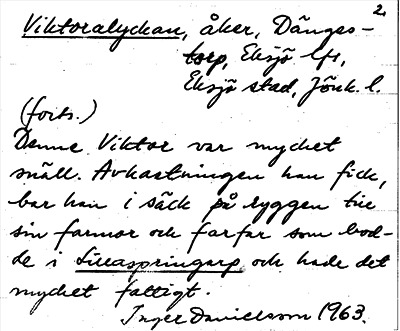 2.
Viktoralyckan, åker, Dänges-
torp, Eksjö lfs,
Eksjö stad, Jönk. l.
(forts.)
Denne Viktor var mycket
snäll. Avkastningen han fick,
bar han i säck på ryggen till
sin farmor och farfar som bod-
de i Lilla springarp och hade det
mycket fattigt.
Inger Danielsson 1963.